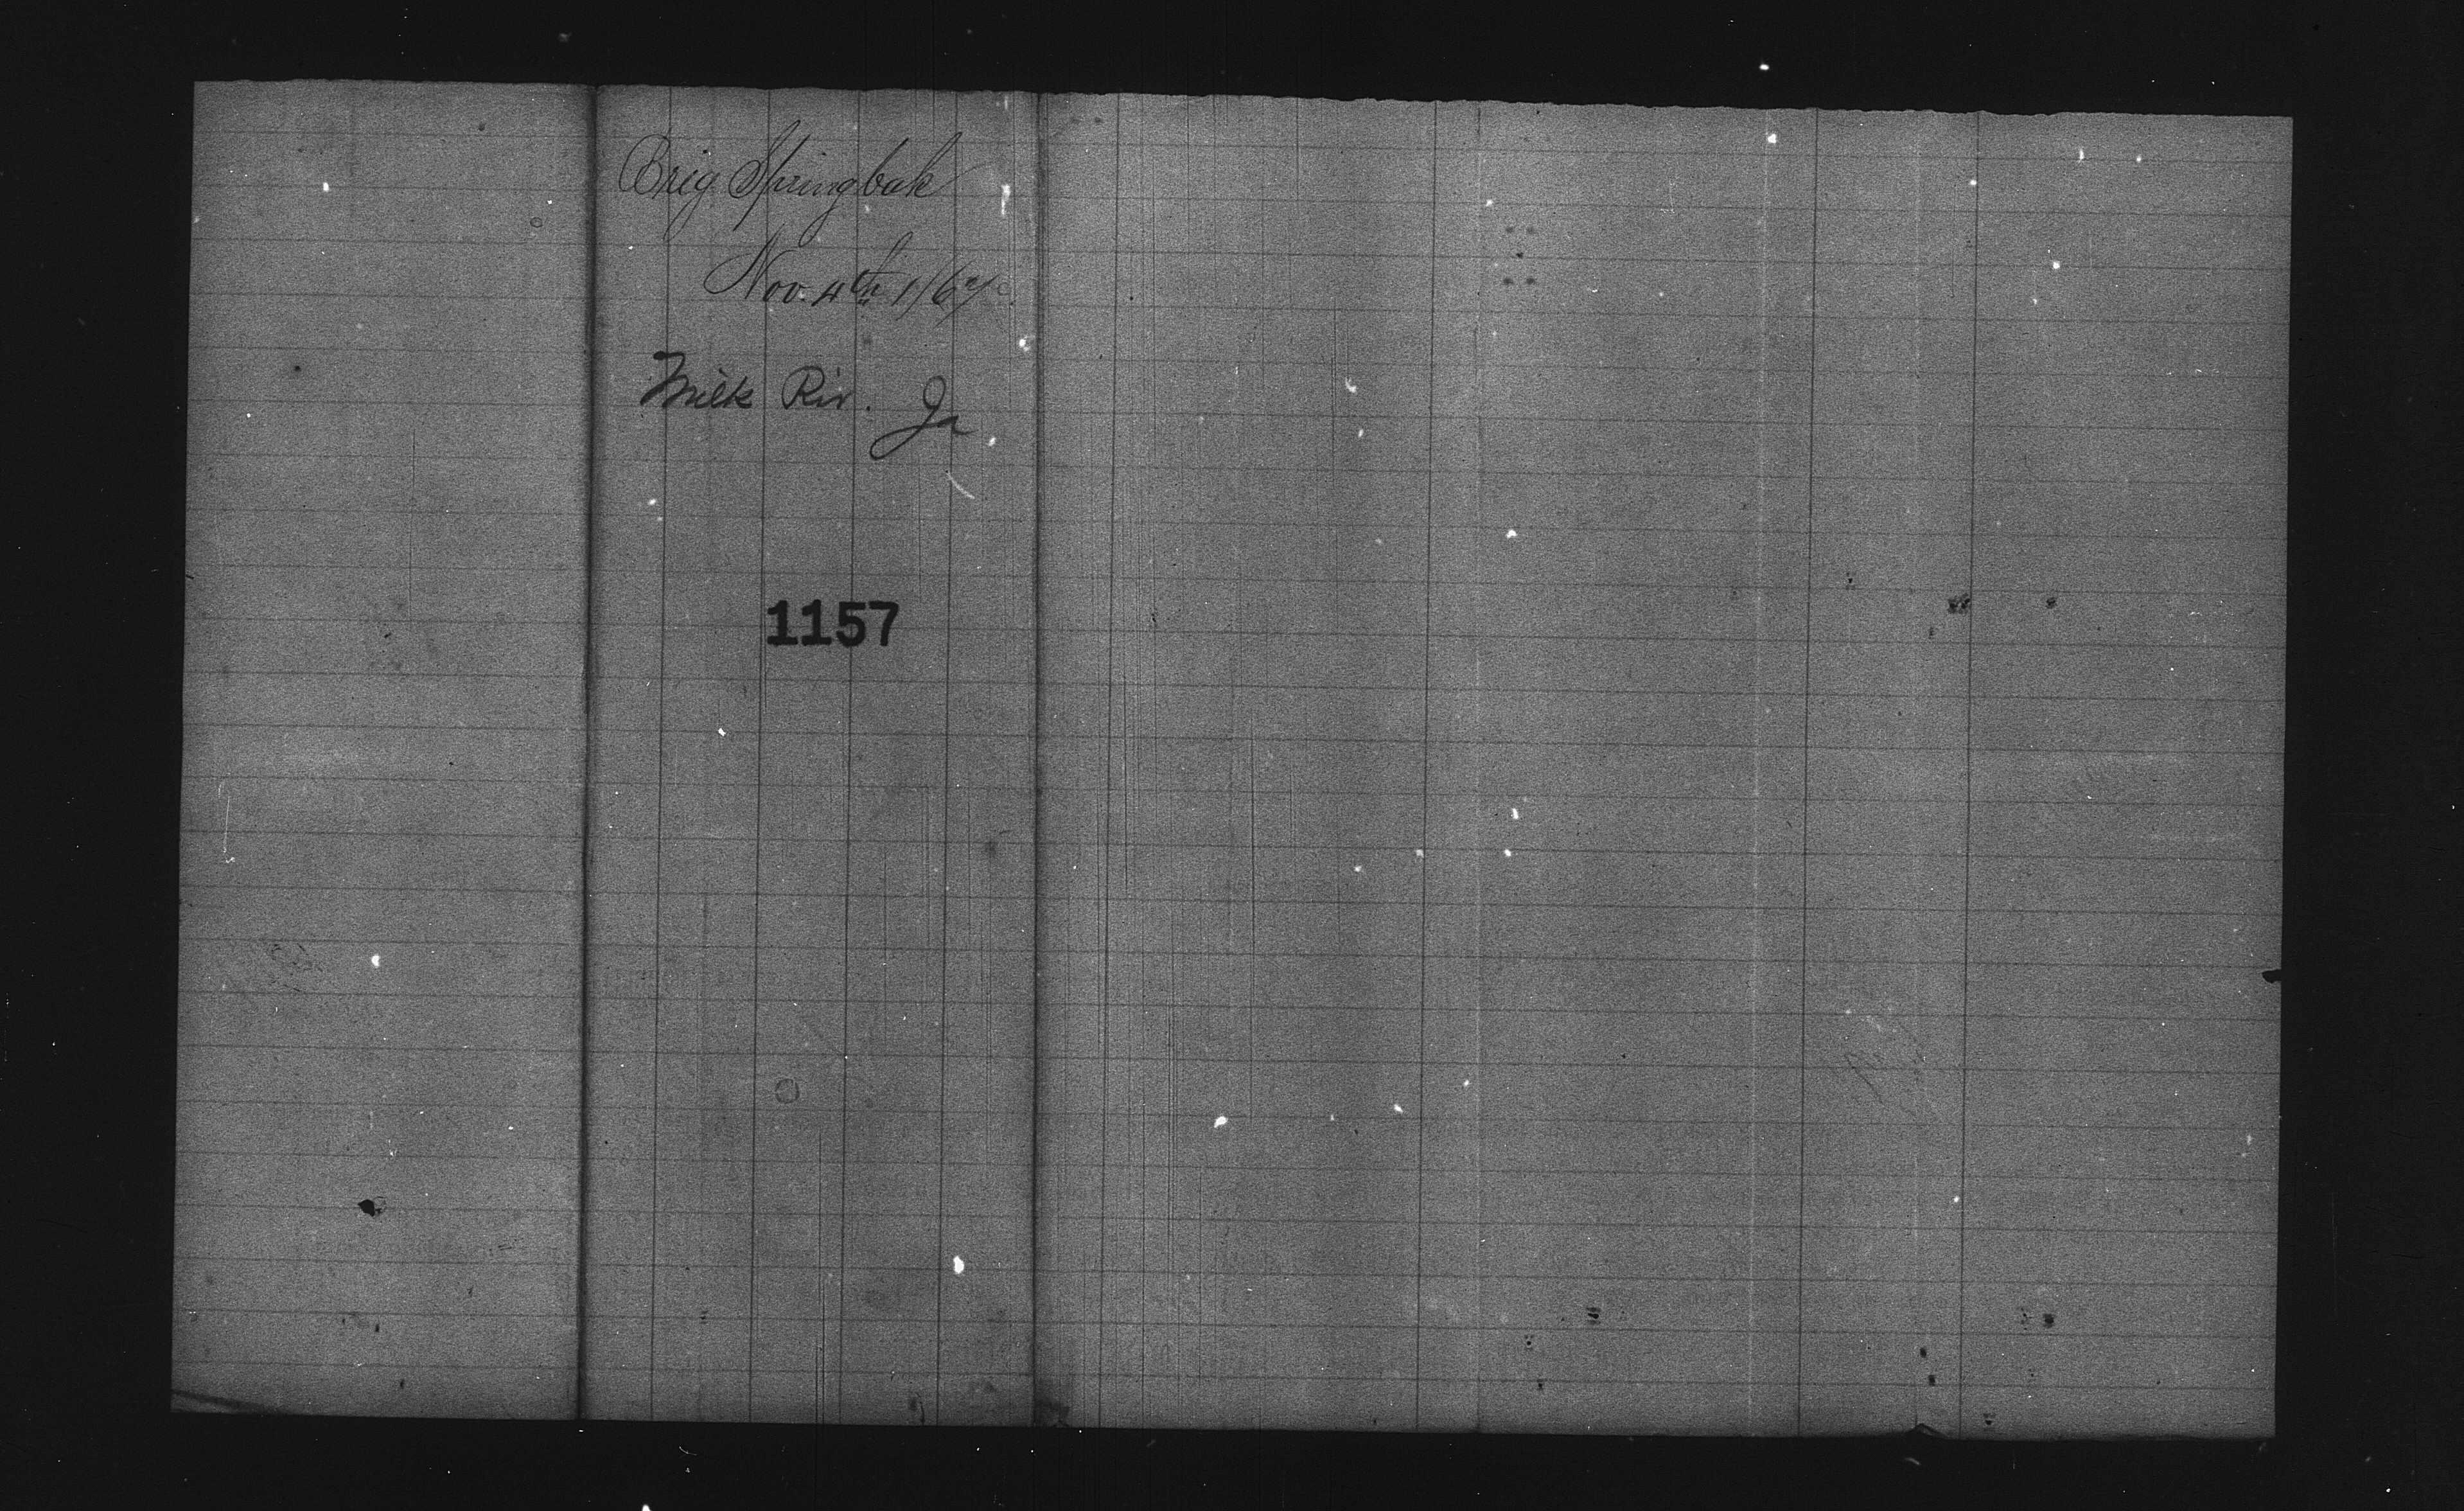 Brig Springbok
Nov. 4th 1867
Milk Riv. Ja
1157